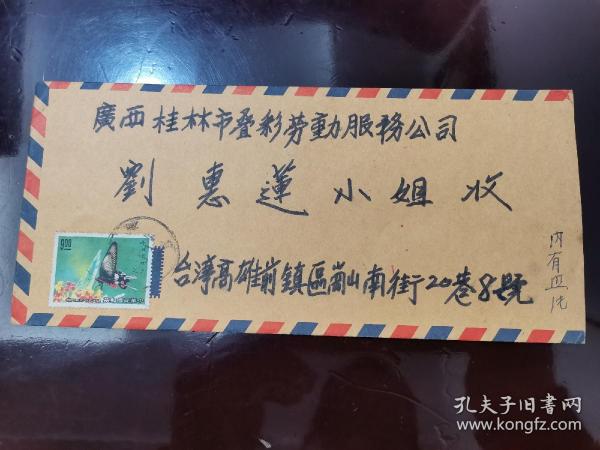 廣西桂林市叠彩劳動服務公司
劉惠蓮小姐收
内有
9.00
台灣高雄前鎮區崗山南街20巷8號
孔夫子旧书网
www.kongfz.com